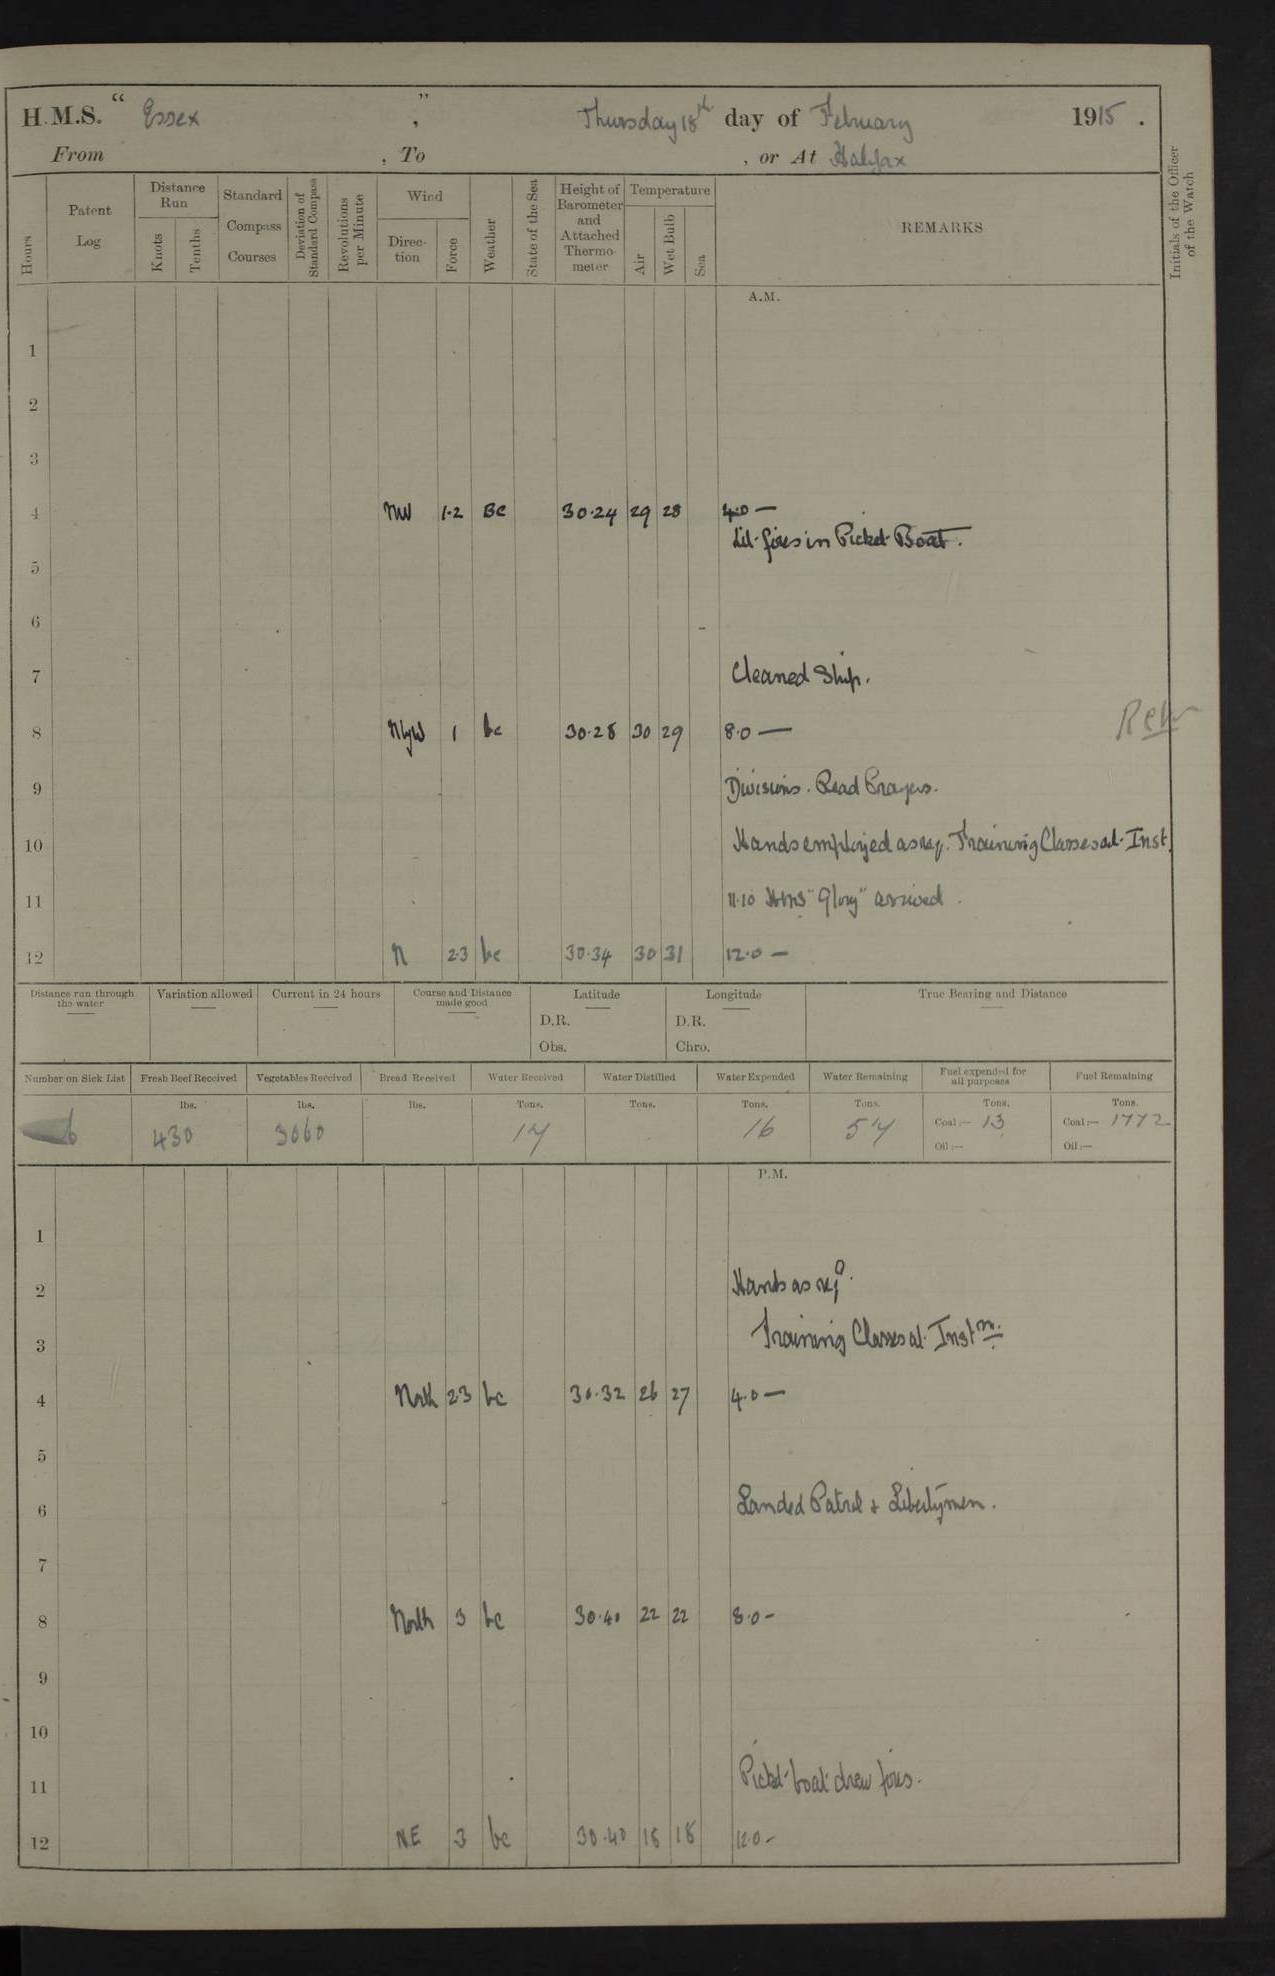 H.M.S. “ Essex ” , Thursday 18th day of February 1915 .
From , To , or At Halifax
Hours
Patent Log
Distance Run
Knots
Tenths
Standard Compass Courses
Deviation of Standard Compass
Revolutions per Minute
Wind
Direc-tion
Force
Weather
State of the Sea
Height of Barometer and Attached Thermo-meter
Temperature
Air
Wet Bulb
Sea
REMARKS
Initials of the Officer of the Watch
A.M.
1
2
3
4 NW 1·2 BC 30·24 29 28 4·0 —
Lit fires in Picket Boat.
5
6
7 Cleaned Ship.
8 NbyW 1 bc 30·28 30 29 8·0 —
9 Divisions. Read Prayers.
10 Hands employed as req. Training Classes at Inst.
11 11·10 HMS "Glory" arrived.
12 N 2·3 bc 30·34 30 31 12·0 —
Distance run through the water
Variation allowed
Current in 24 hours
Course and Distance made good
Latitude
D.R.
Obs.
Longitude
D.R.
Chro.
True Bearing and Distance
Number on Sick List Fresh Beef Received Vegetables Received Bread Received Water Received Water Distilled Water Expended Water Remaining Fuel expended for all purposes Fuel Remaining
lbs. lbs. lbs. Tons. Tons. Tons. Tons. Tons. Tons.
6 430 3060 17 16 57 Coal:— 13 Coal:— 1772
Oil:— Oil:—
P.M.
1
2 Hands as reqd.
3 Training Classes at Instn.
4 North 2·3 bc 30·32 26 27 4·0 —
5
6 Landed Patrol & Libertymen.
7
8 North 3 bc 30·40 22 22 8·0 -
9
10
11 Picket boat drew fires.
12 N.E 3 bc 30·40 18 18 12·0 -